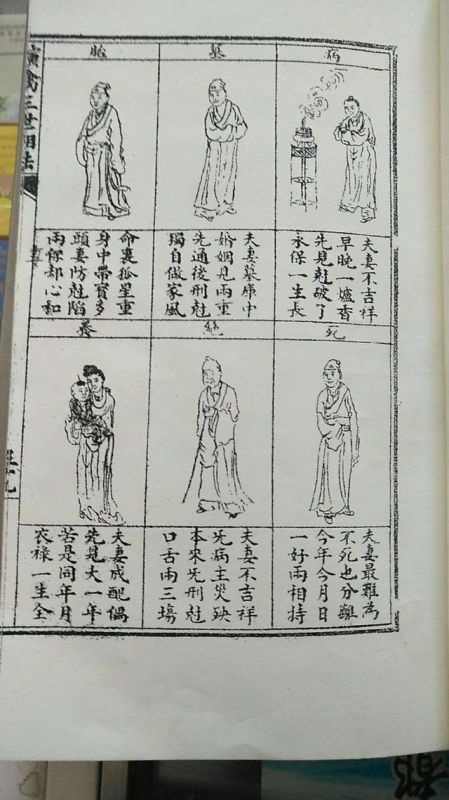 病
夫妻不吉祥
早晚一爐香
先見尅破了
永保一生長
墓
夫妻墓庫中
婚姻見兩重
先通後刑尅
獨自做家風
胎
命裏孤星重
身中帶寶多
頭妻防尅陷
兩保却心和
死
夫妻最難為
不死也分離
今年今月日
一好兩相持
絕
夫妻不吉祥
先病主災殃
本來先刑尅
口舌兩三場
養
夫妻成配偶
先見大一年
若是同年月
衣祿一生全
演禽三世相法